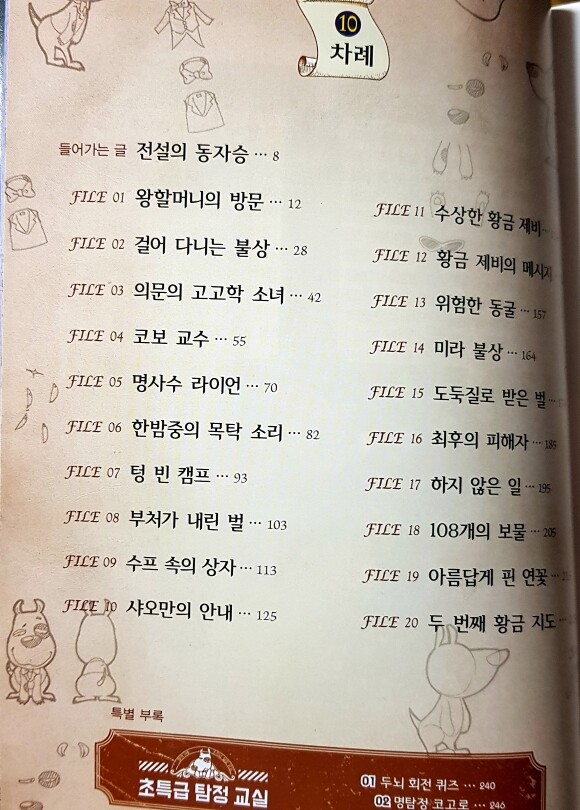 10
차례
들어가는 글 전설의 동자승 … 8
FILE 01 왕할머니의 방문 … 12
FILE 02 걸어 다니는 불상 … 28
FILE 03 의문의 고고학 소녀 … 42
FILE 04 코보 교수 … 55
FILE 05 명사수 라이언 … 70
FILE 06 한밤중의 목탁 소리 … 82
FILE 07 텅 빈 캠프 … 93
FILE 08 부처가 내린 벌 … 103
FILE 09 수프 속의 상자 … 113
FILE 10 샤오만의 안내 … 125
FILE 11 수상한 황금 제비
FILE 12 황금 제비의 메시지
FILE 13 위험한 동굴 … 157
FILE 14 미라 불상 … 164
FILE 15 도둑질로 받은 벌 …
FILE 16 최후의 피해자 … 185
FILE 17 하지 않은 일 … 195
FILE 18 108개의 보물 … 205
FILE 19 아름답게 핀 연꽃 …
FILE 20 두 번째 황금 지도 …
특별 부록
초특급 탐정 교실
01 두뇌 회전 퀴즈 … 240
02 명탐정 코고로 … 246